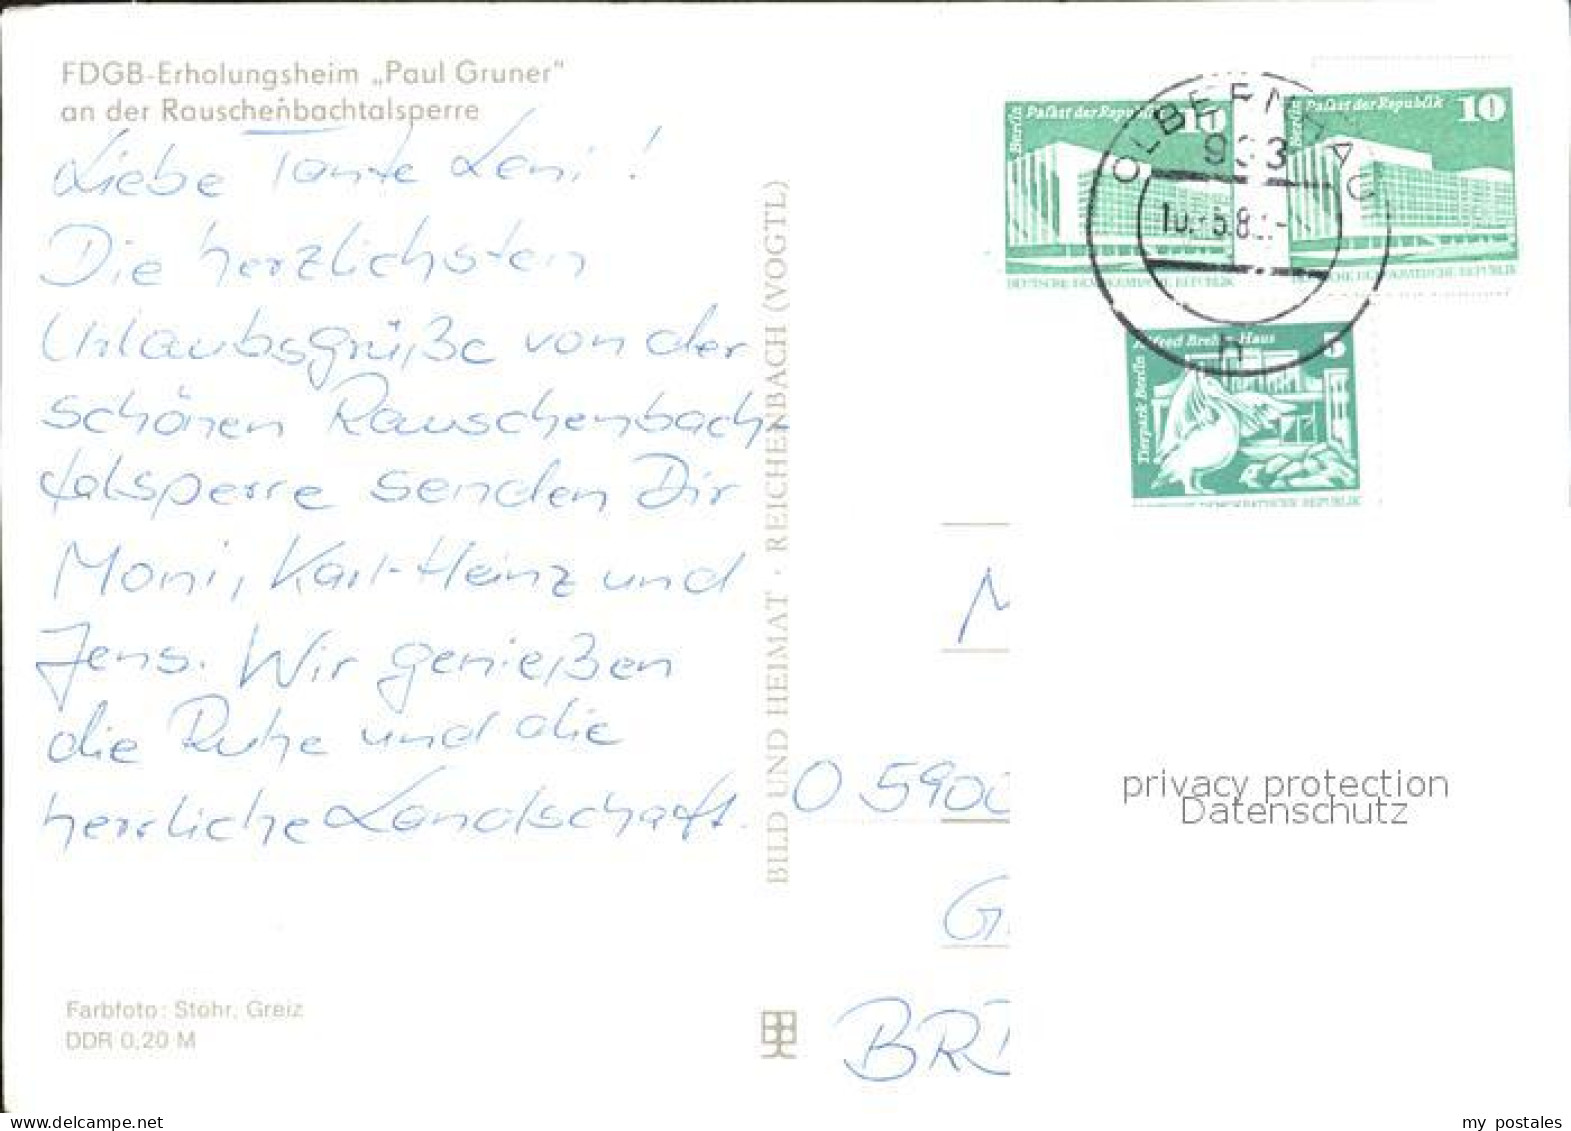 FDGB-Erholungsheim „Paul Gruner"
an der Rauschenbachtalsperre
Liebe Tante Leni!
Die herzlichsten
Urlaubsgrüße von der
schönen Rauschenbach
talsperre senden Dir
Moni, Karl-Heinz und
Jens. Wir genießen
die Ruhe und die
herrliche Landschaft.
Farbfoto: Stöhr, Greiz
DDR 0,20 M
BILD UND HEIMAT · REICHENBACH (VOGTL)
Berlin Palast der Republik 10
DEUTSCHE DEMOKRATISCHE REPUBLIK
OLBERNHAU
933
h
Berlin Palast der Republik 10
DEUTSCHE DEMOKRATISCHE REPUBLIK
Tierpark Berlin Alfred Brehm-Haus 5
DEMOKRATISCHE REPUBLIK
M
O 590
G
BR
privacy protection
Datenschutz
my postales